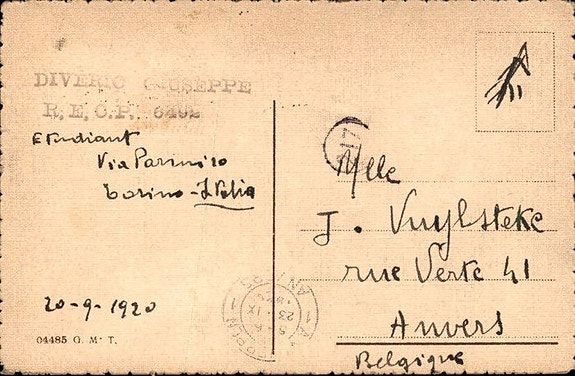 DIVERIO GIUSEPPE
R. E. C. P. 6492
Etudiant
Via Parini 10
Torino - Italia
20-9-1920
04485 G. M. T.
17
Mlle
J. Vuylsteke
rue Verte 41
Anvers
Belgique